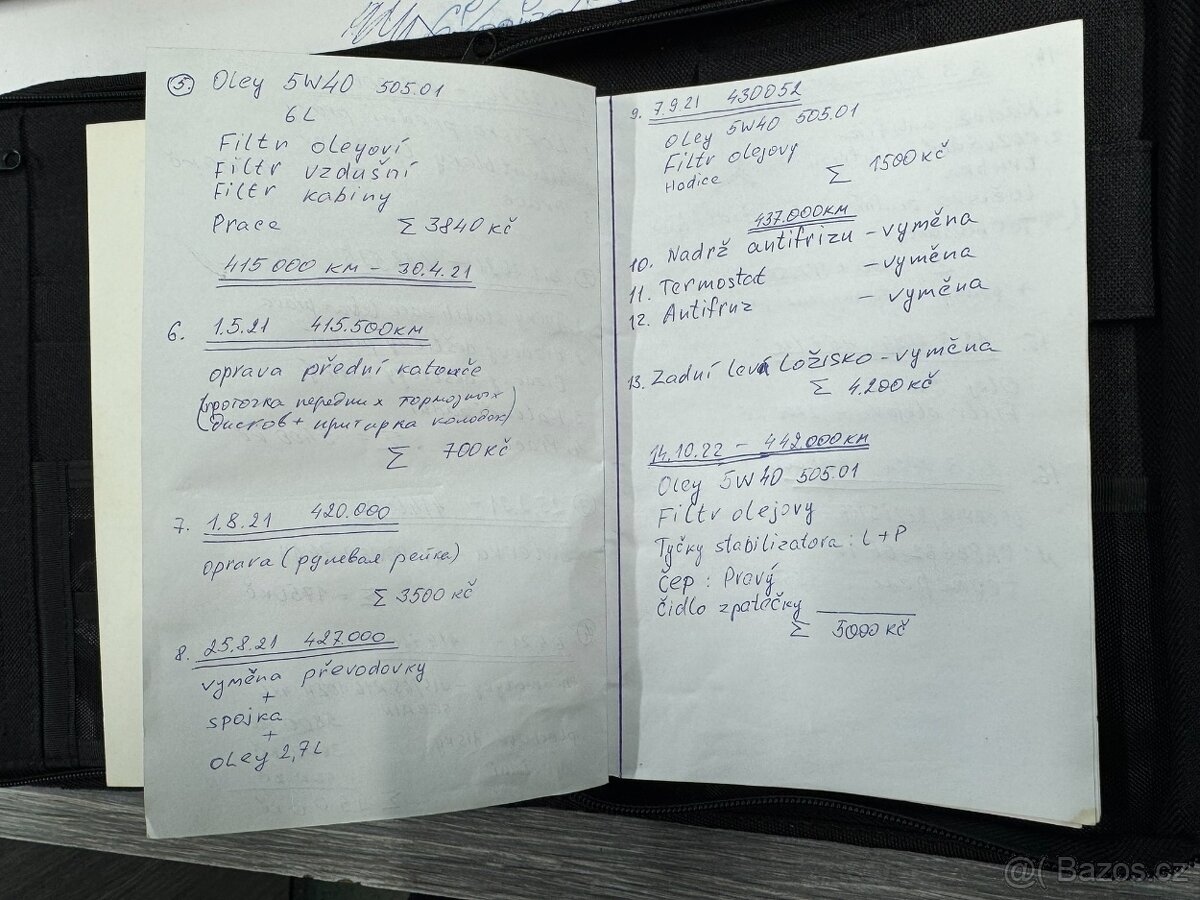 5. Oley 5W40 505.01
6L
Filtr oleyoví
Filtr vzdušní
Filtr kabiny
Prace Σ 3840 kč
415 000 км - 30.4.21
6. 1.5.21 415.500км
oprava přední katouče
(проточка передних тормозных
дисков + притирка колодок)
Σ 700 kč
7. 1.8.21 420.000
oprava (рулевая рейка)
Σ 3500 kč
8. 25.8.21 427.000
vyměna převodovky
+
spojka
+
oLey 2,7L
9. 7.9.21 430052
Oley 5W40 505.01
Filtr olejovy
Hadice Σ 1500 kč
437.000км
10. Nadrž antifrizu - vyměna
11. Termostat - vyměna
12. Antifruz - vyměna
13. Zadní levá Ložisko - vyměna
Σ 4.200 kč
14.10.22 - 442.000км
Oley 5W40 505.01
Filtr olejovy
Tyčky stabilizatora: L + P
Čep : Pravý
Čidlo zpatečky
Σ 5000 kč
@( Bazos.cz